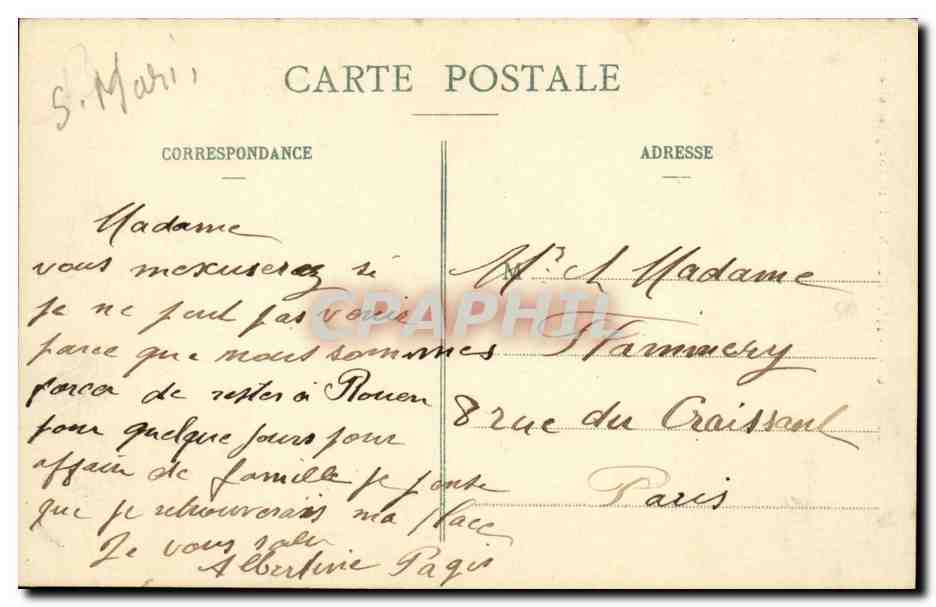 S. Mari,
CARTE POSTALE
CORRESPONDANCE
Madame
vous mexuserez si
je ne peut pas venir
parce que nous sommes
forcer de rester à Rouen
pour quelque jours pour
affair de famille je panse
que je retrouverais ma place
Je vous salu
Albertine Pagis
ADRESSE
Mr et Madame
Flammery
8 rue du Craissant
Paris
CPAPHIL